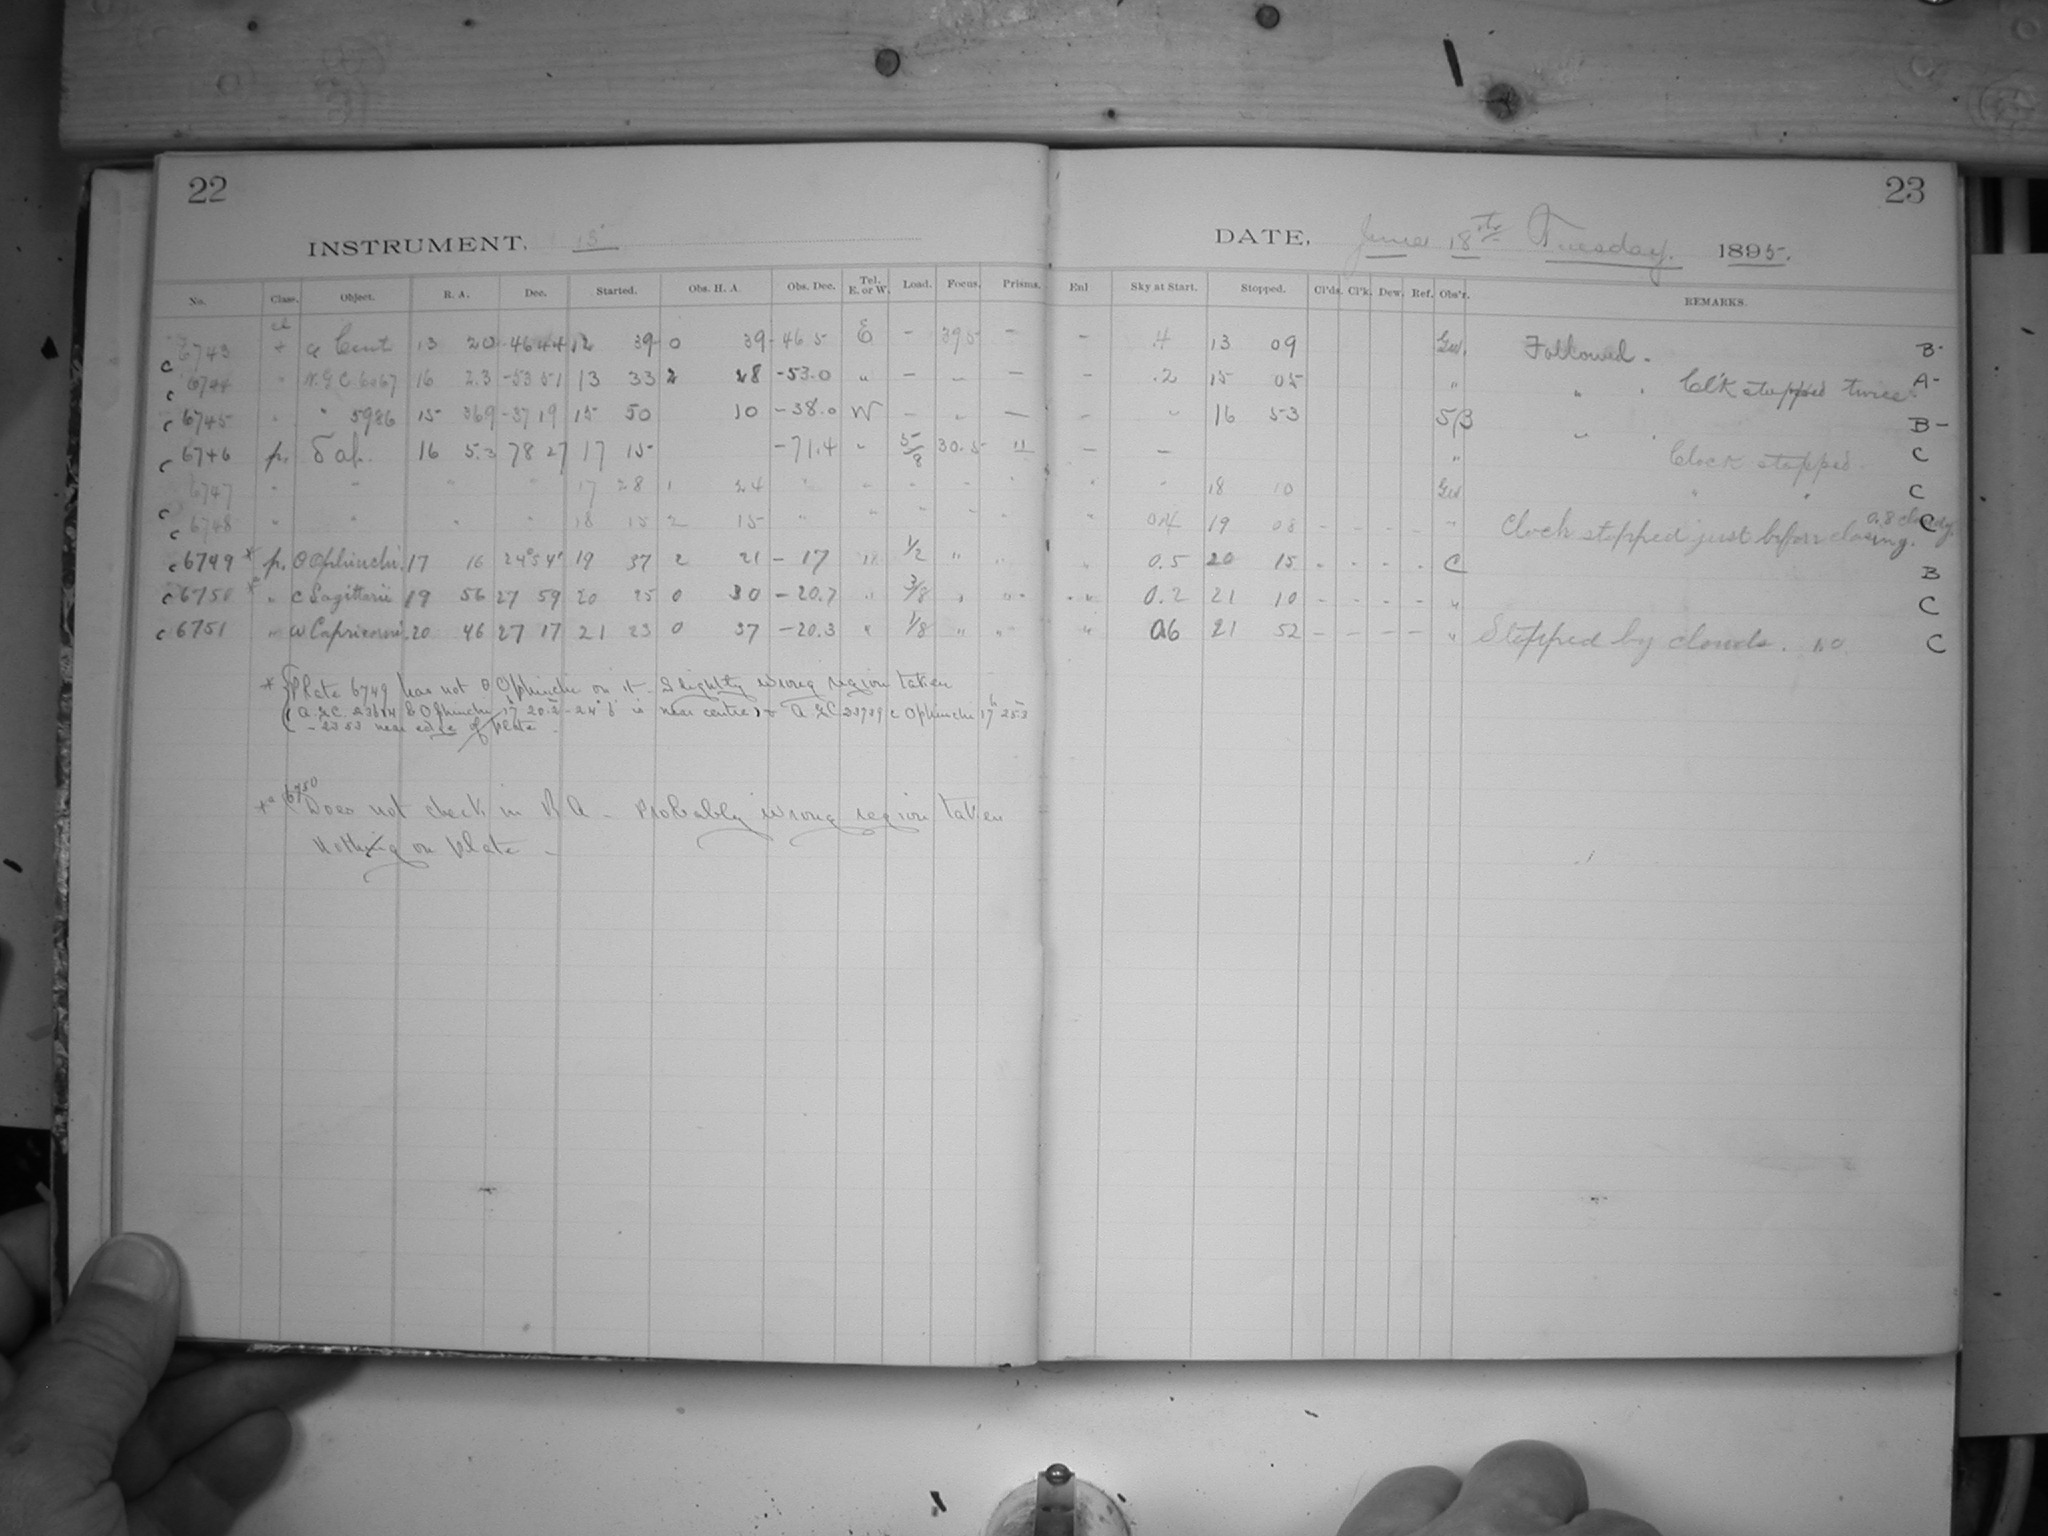 22
INSTRUMENT, 15
No. Class. Object. R. A. Dec. Started. Obs. H. A. Obs. Dec. Tel. E. or W. Load. Focus. Prisms.
cl
6743 + Cent 13 20 -46 44 12 39 0 39 -46 5 E - 39 5 -
c 6744 " N.G.C. 6067 16 2.3 -53 51 13 33 2 28 -53.0 " - - -
c 6745 " " 5986 15 36 9 -37 19 15 50 10 -38.0 W - " -
c 6746 p. δ 16 5.3 78 27 17 15 -71.4 " 5/8 30.5 11
c 6747 " " " " 17 28 1 24 " " " " "
c 6748 " " " " 18 15 2 15 " " " " "
c 6749 * p. θ Ophiuchi 17 16 24° 54' 19 37 2 21 - 17 " 1/2 " "
c 6750 *² " c Sagittarii 19 56 27 59 20 25 0 30 -20.7 " 3/8 " "
c 6751 " ω Capricorni 20 46 27 17 21 23 0 37 -20.3 " 1/8 " "
* Plate 6749 has not θ Ophiuchi on it - Slightly wrong region taken
(A.G.C. Ophiuchi 17 20.2 - 24° 6' is near centre & A.G.C. 23739 c Ophiuchi 17 25.3
- 23 53 near edge of plate -
*² 6750 Does not check in R A - Probably wrong region taken
Nothing on plate -
23
DATE, June 18th Tuesday. 1895.
Enl Sky at Start. Stopped. Cl'ds. Cl'k. Dew. Ref. Obs'r. REMARKS.
- .4 13 09 Followed. B-
- .2 15 05 " " Cl'k stopped twice. A-
- " 16 53 " " B-
- - " Clock stopped. C
" " 18 10 " " C
" 0.4 19 08 - - - - " Clock stopped just before closing. 0.8 cloudy. C
" 0.5 20 15 - - - - C B
" 0.2 21 10 - - - - " C
" 0.6 21 52 - - - - " Stopped by clouds. C